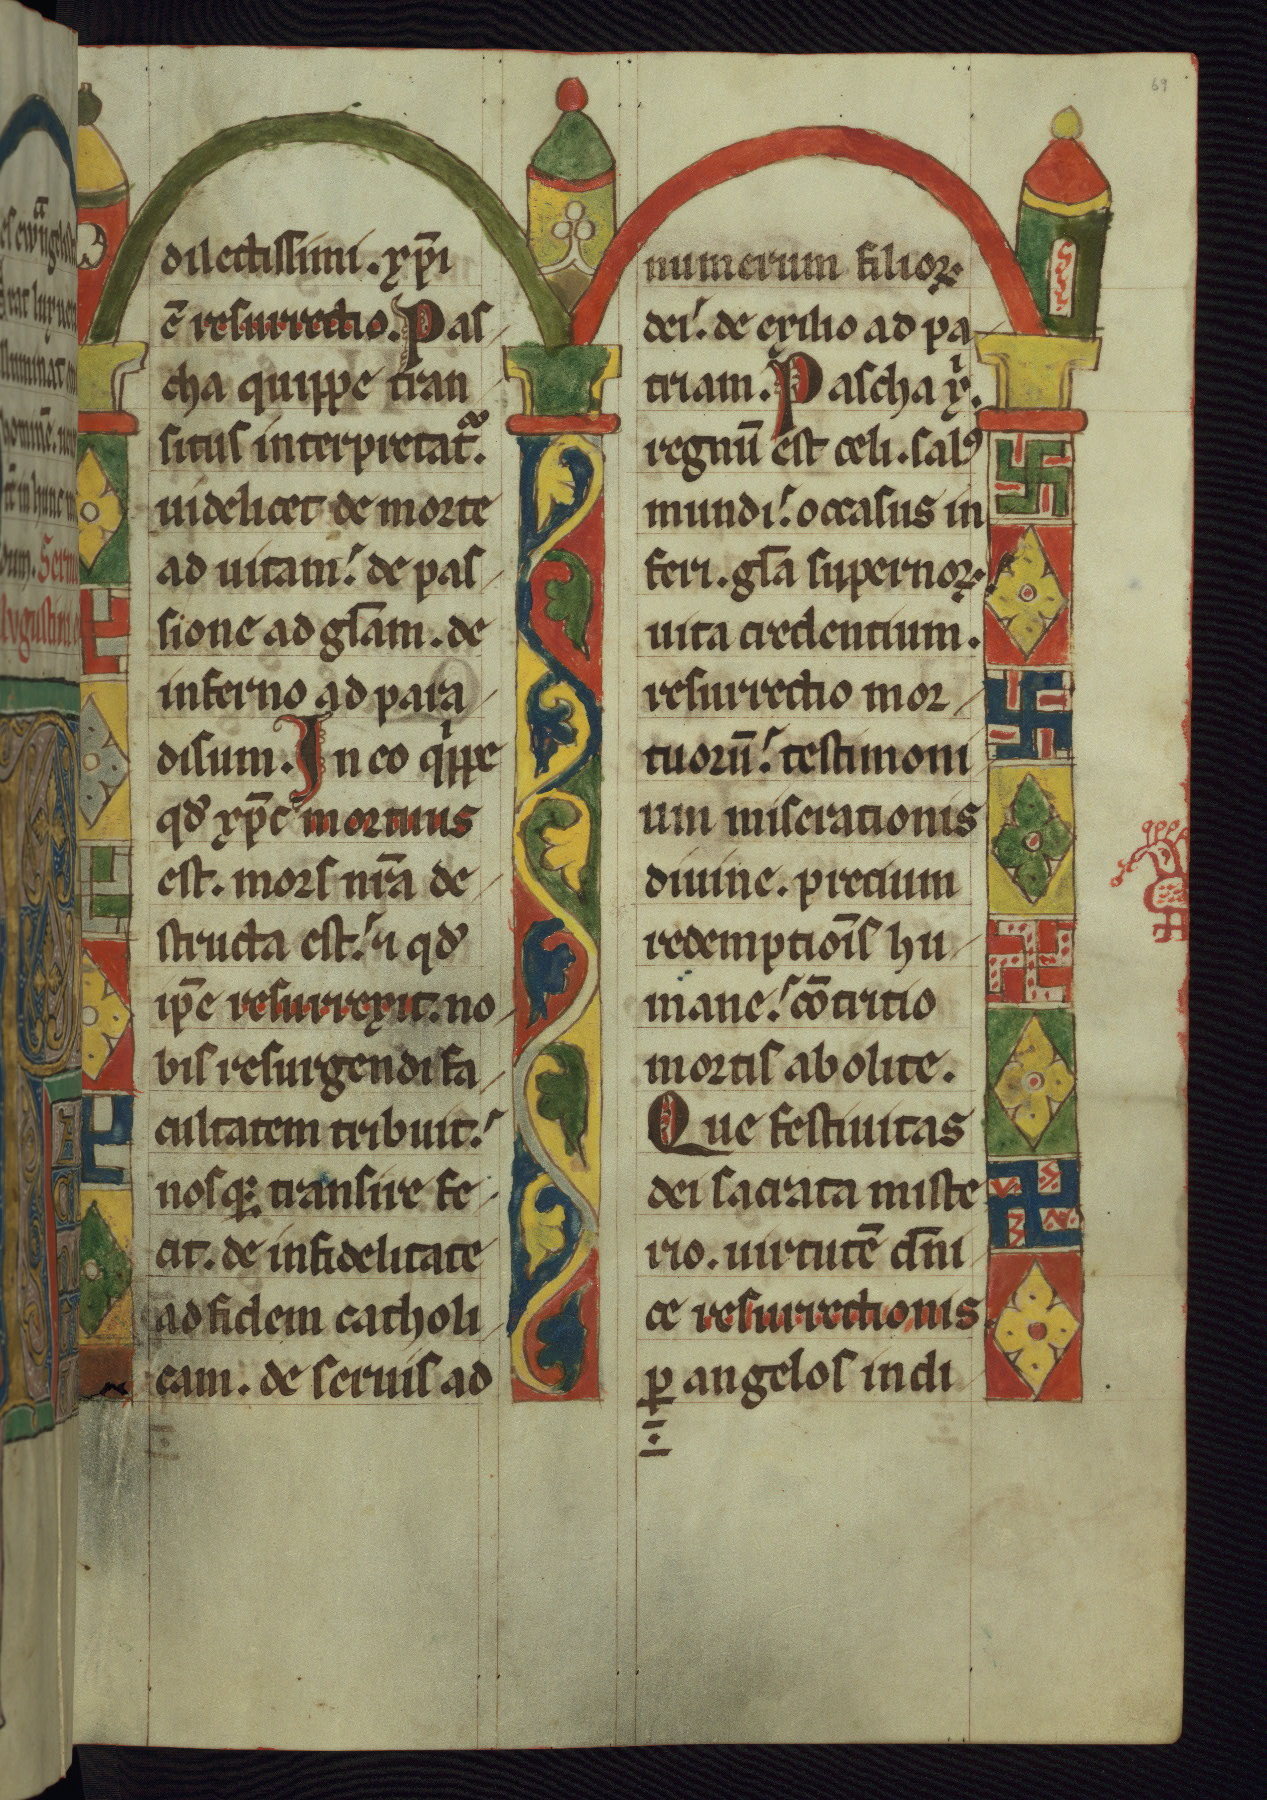 69
dilectissimi. xp̄i
ē resurrectio. Pas
cha quippe tran
situs interpretat᷑.
uidelicet de morte
ad uitam. de pas
sione ad gl̄am. de
inferno ad para
disum. In eo qippe
qd̛ xp̄c mortuus
est. mors nr̄a de
structa est. ⁊ qd̛
ip̄e resurrexit. no
bis resurgendi fa
cultatem tribuit.
nosq; transire fe
cit. de infidelitate
ad fidem catholi
cam. de seruis ad
numerum filioꝝ
dei. de exilio ad pa
triam. Pascha xͥ.
regnū est celi. salꝰ
mundi. occasus in
feri. gl̄a supernoꝝ
uita credentium.
resurrectio mor
tuorū. testimoni
um miserationis
diuine. precium
redemptiōis hu
mane. cōtritio
mortis abolite.
Que festiuitas
dei sacrata miste
rio. uirtutē dn̄i
ce resurrectionis
ꝑ angelos indi